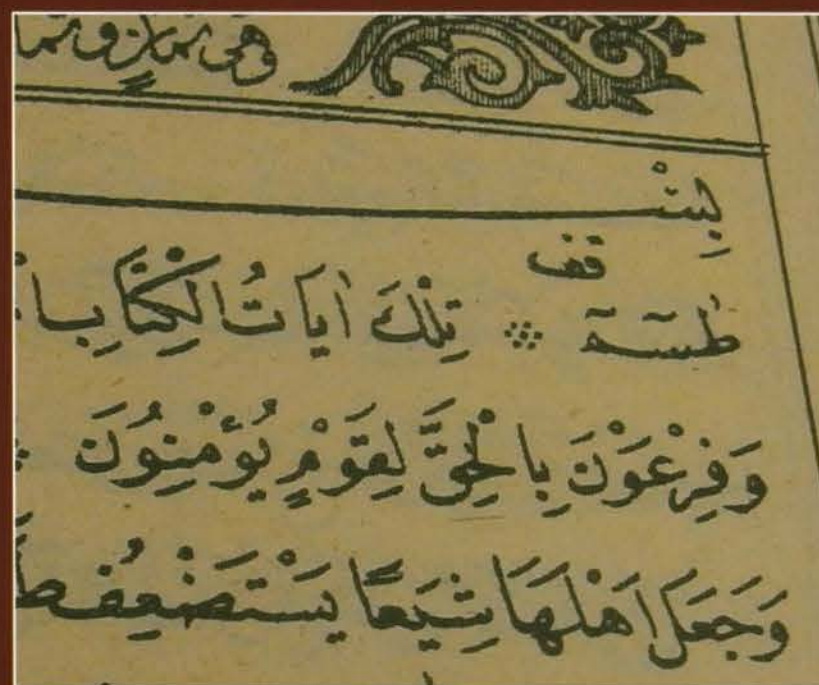 وهى ثمان وثما
بِسْـــــــ
قف
طٰسٓمٓ ⁘ تِلْكَ اٰيَاتُ الْكِتَابِ ا
وَفِرْعَوْنَ بِالْحَقِّ لِقَوْمٍ يُؤْمِنُونَ
وَجَعَلَ اَهْلَهَا شِيَعًا يَسْتَضْعِفُ طَ